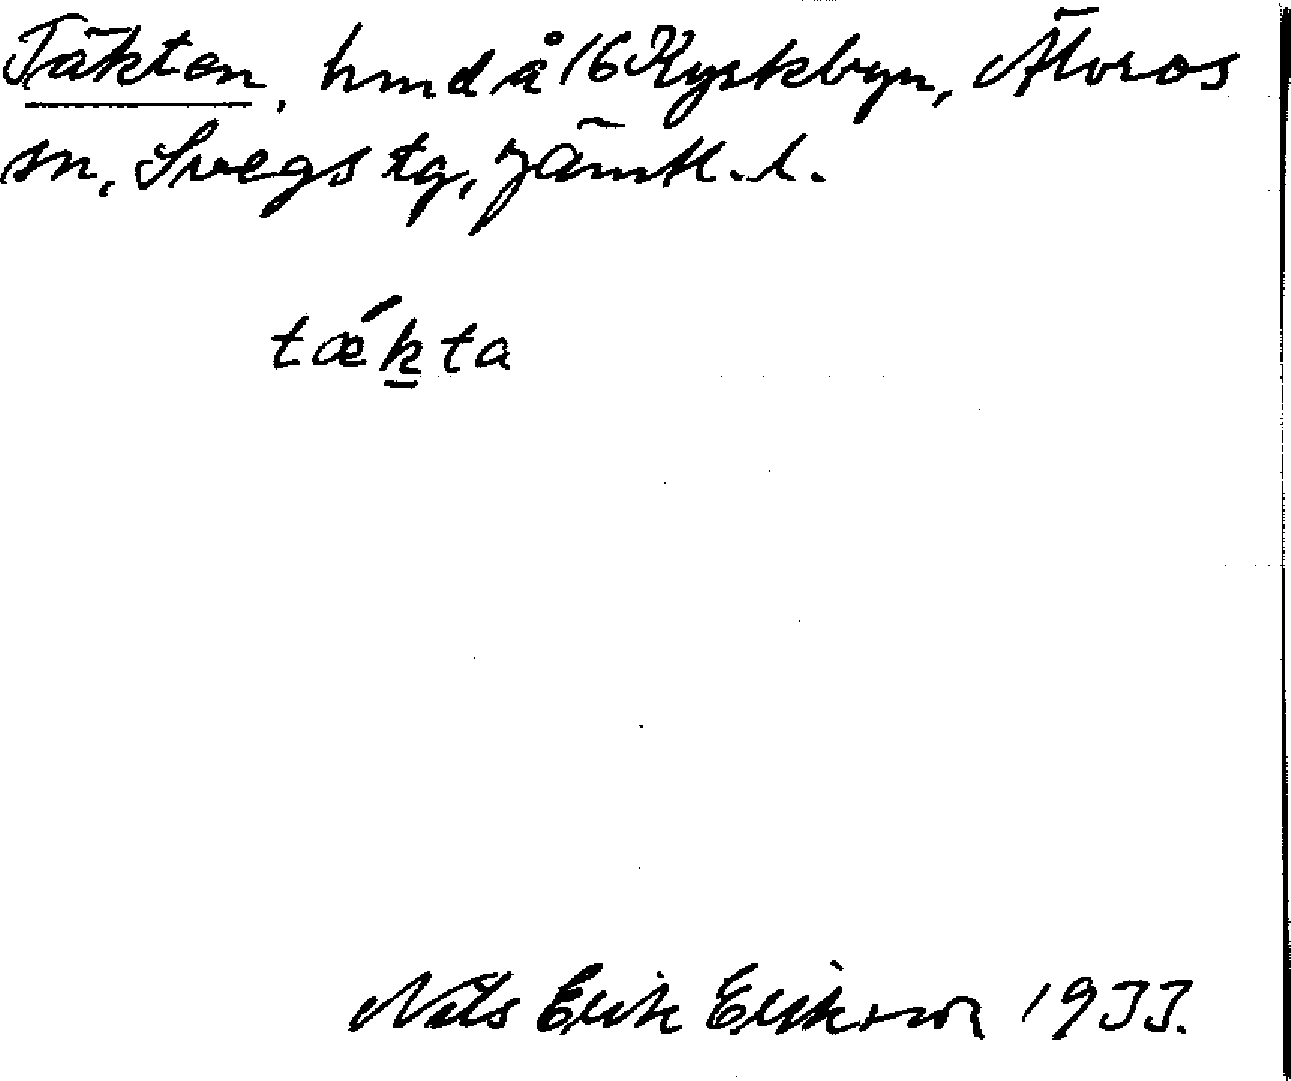 Täkten, hmd å 16 Kyrkbyn, Älvros
sn, Svegs tg, Jämtl. l.
tǽk̲ta
Nils Erik Eriksson 1933.